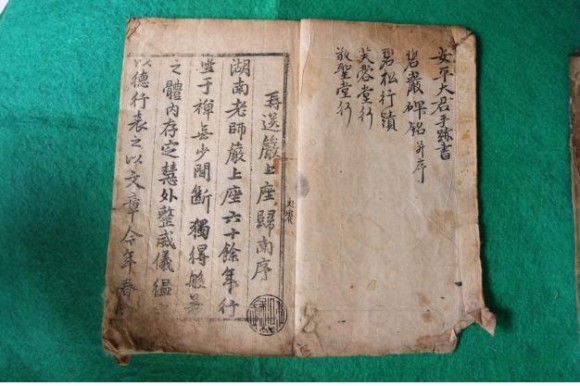 安平大君手跡書
碧巖碑銘并序
碧松行蹟
芙蓉堂行
敬聖堂行
再送巖上座歸南序
湖南老師巖上座六十餘年行
坐于禪無少間斷獨得般若
之體內存定慧外整威儀縕
以德行表之以文章今年春